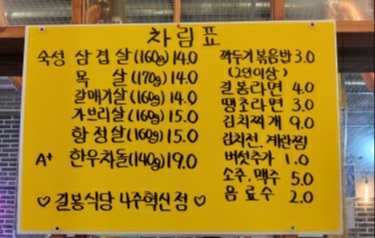 차림표
숙성 삼겹살(160g) 14.0
목살(170g) 14.0
갈매기살(160g) 14.0
가브리살(160g) 15.0
항정살(160g) 15.0
A+ 한우차돌(140g) 19.0
♡ 결봉식당 4주혁신점 ♡
깍두기볶음밥 3.0
(2인이상)
결봉라면 4.0
땡초라면 3.0
김치찌개 9.0
김치전, 계란찜
버섯추가 1.0
소주, 맥주 5.0
음료수 2.0